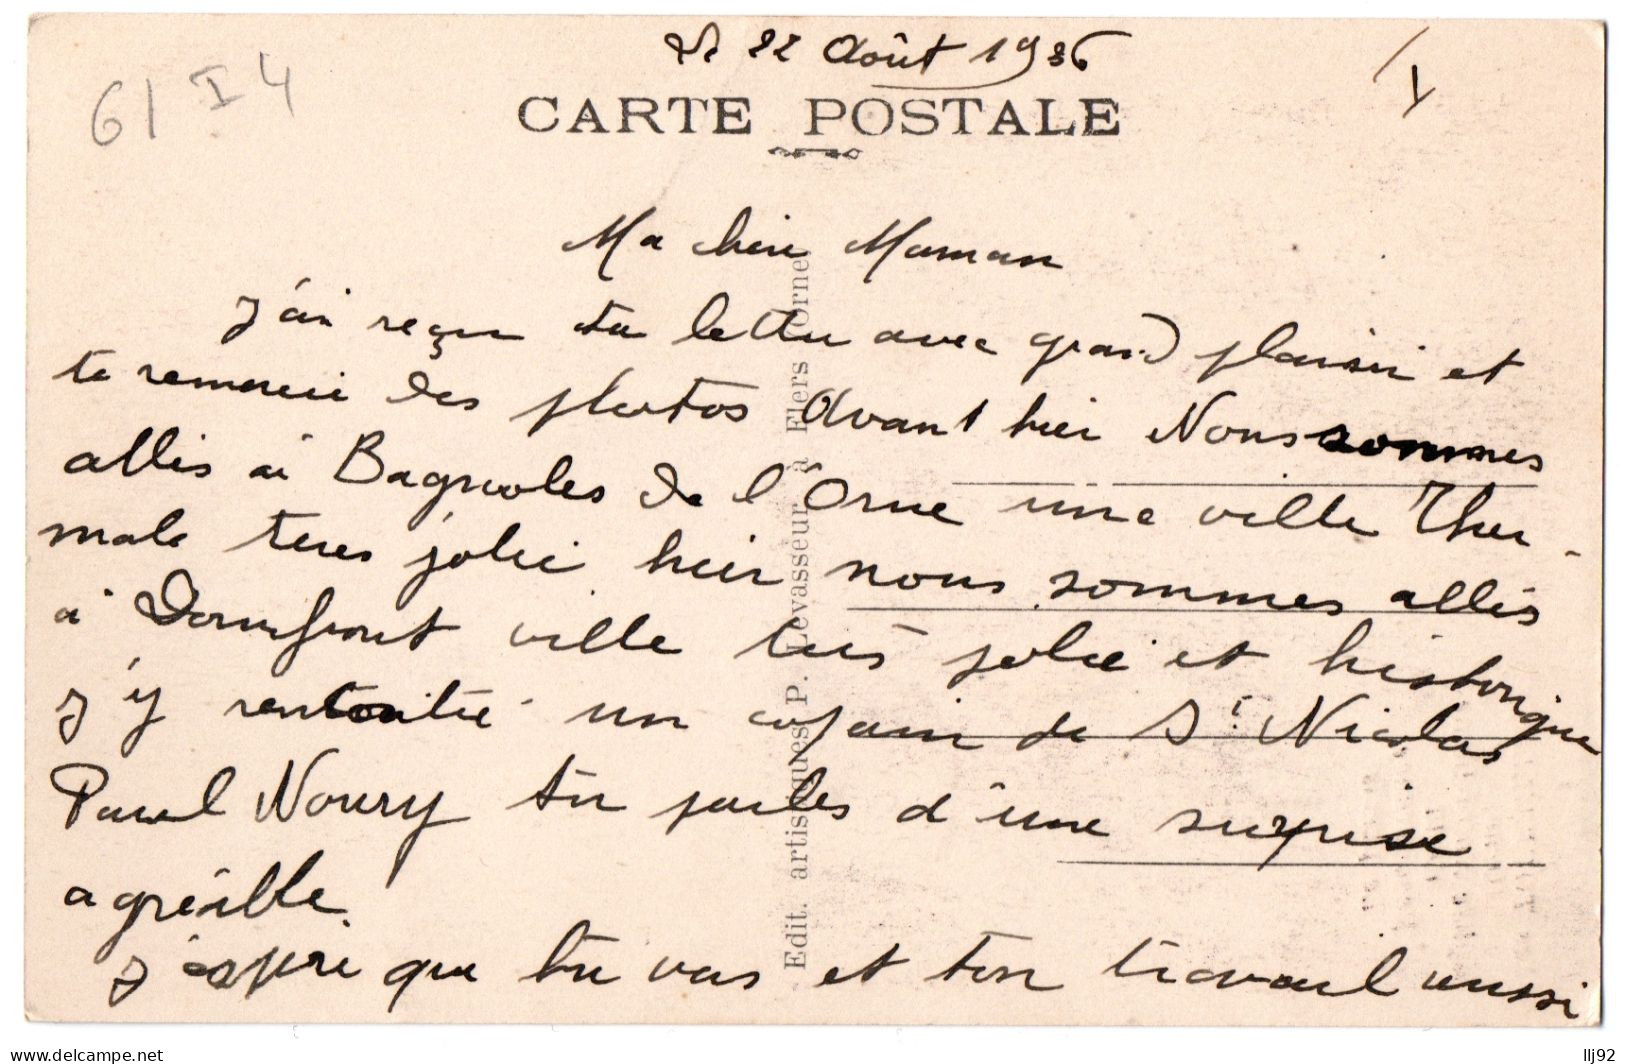 Le 22 Août 1936
61 I 4
CARTE POSTALE
Ma chère Maman
J'ai reçu ta lettre avec grand plaisir et
te remercie des photos Avant hier Nous sommes
allés à Bagnoles de l'Orne une ville Ther-
male tères jolie hier nous sommes allés
à Domfront ville très jolie et historique
J'y rencontré un cousin de St Nicolas
Paul Noury tu parles d'une surprise
agréable.
J'espère que tu vas et ton travail aussi
Edit. artistiques P. Levasseur à Flers (Orne)
llj92